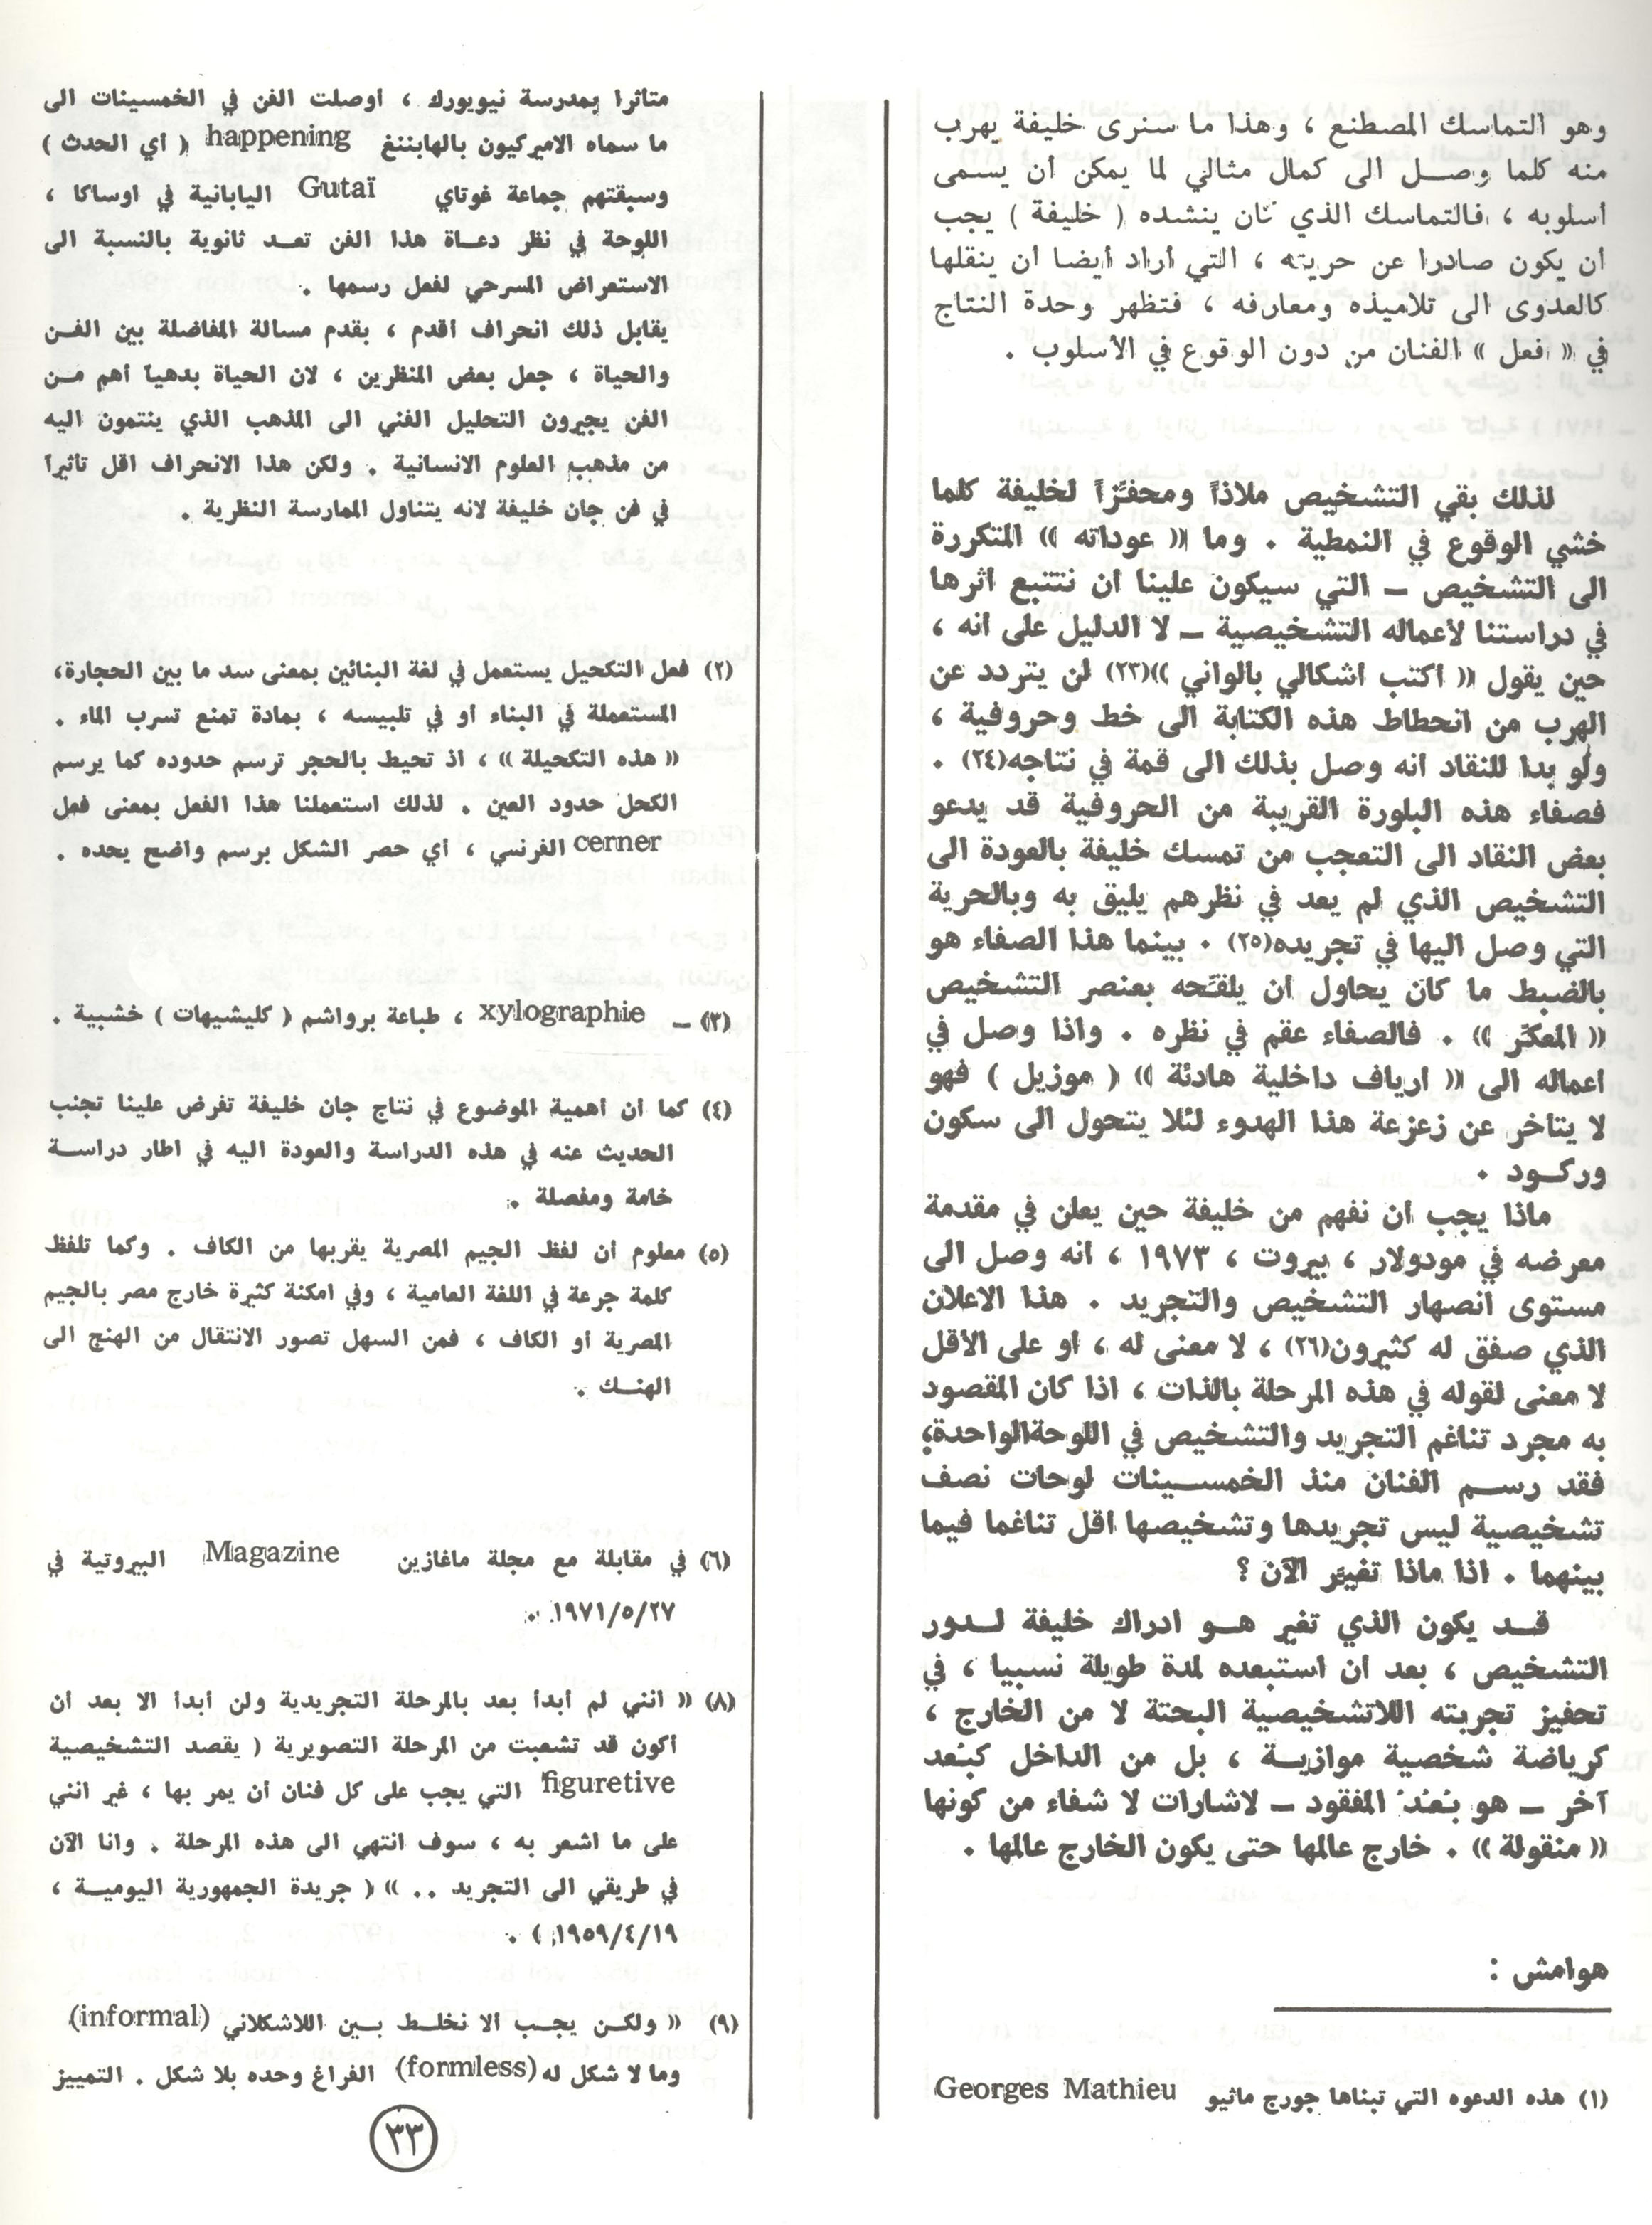 وهو التماسك المصطنع ، وهذا ما سنرى خليفة يهرب
منه كلما وصل الى كمال مثالي لما يمكن أن يسمى
أسلوبه ، فالتماسك الذي كان ينشده ( خليفة ) يجب
أن يكون صادرا عن حريته ، التي أراد أيضا أن ينقلها
كالعدوى الى تلاميذه ومعارفه ، فتظهر وحدة النتاج
في « فعل » الفنان من دون الوقوع في الأسلوب .
لذلك بقي التشخيص ملاذاً ومحفّزاً لخليفة كلما
خشي الوقوع في النمطية . وما « عوداته » المتكررة
الى التشخيص – التي سيكون علينا ان نتتبع اثرها
في دراستنا لأعماله التشخيصية – لا الدليل على انه ،
حين يقول « اكتب اشكالي بالواني »(٢٣) لن يتردد عن
الهرب من انحطاط هذه الكتابة الى خط وحروفية ،
ولو بدا للنقاد انه وصل بذلك الى قمة في نتاجه(٢٤) .
فصفاء هذه البلورة القريبة من الحروفية قد يدعو
بعض النقاد الى التعجب من تمسك خليفة بالعودة الى
التشخيص الذي لم يعد في نظرهم يليق به وبالحرية
التي وصل اليها في تجريده(٢٥) . بينما هذا الصفاء هو
بالضبط ما كان يحاول أن يلقّحه بعنصر التشخيص
« المعكّر » . فالصفاء عقم في نظره . واذا وصل في
اعماله الى « ارياف داخلية هادئة » ( موزيل ) فهو
لا يتاخر عن زعزعة هذا الهدوء لئلا يتحول الى سكون
وركود .
ماذا يجب ان نفهم من خليفة حين يعلن في مقدمة
معرضه في مودولار ، بيروت ، ١٩٧٣ ، انه وصل الى
مستوى انصهار التشخيص والتجريد . هذا الاعلان
الذي صفق له كثيرون(٢٦) ، لا معنى له ، او على الأقل
لا معنى لقوله في هذه المرحلة بالذات ، اذا كان المقصود
به مجرد تناغم التجريد والتشخيص في اللوحة الواحدة،
فقد رسم الفنان منذ الخمسينات لوحات نصف
تشخيصية ليس تجريدها وتشخيصها اقل تناغما فيما
بينهما . اذا ماذا تغيّر الآن ؟
قد يكون الذي تغير هو ادراك خليفة لدور
التشخيص ، بعد أن استبعده لمدة طويلة نسبيا ، في
تحفيز تجربته اللاتشخيصية البحتة لا من الخارج ،
كرياضة شخصية موازية ، بل من الداخل كبُعد
آخر – هو بُعدُ المفقود – لاشارات لا شفاء من كونها
« منقولة » . خارج عالمها حتى يكون الخارج عالمها .
هوامش :
(١) هذه الدعوه التي تبناها جورج ماثيو Georges Mathieu
متاثرا بمدرسة نيويورك ، أوصلت الفن في الخمسينات الى
ما سماه الاميركيون بالهابننغ happening ( أي الحدث )
وسبقتهم جماعة غوتاي Gutaï اليابانية في اوساكا ،
اللوحة في نظر دعاة هذا الفن تعد ثانوية بالنسبة الى
الاستعراض المسرحي لفعل رسمها .
يقابل ذلك انحراف أقدم ، بقدم مسالة المفاضلة بين الفن
والحياة ، جعل بعض المنظرين ، لان الحياة بدهياً أهم من
الفن يجيرون التحليل الفني الى المذهب الذي ينتمون اليه
من مذهب العلوم الانسانية . ولكن هذا الانحراف اقل تاثيراً
في فن جان خليفة لانه يتناول الممارسة النظرية .
(٢) فعل التكحيل يستعمل في لغة البنائين بمعنى سد ما بين الحجارة،
المستعملة في البناء أو في تلبيسه ، بمادة تمنع تسرب الماء .
« هذه التكحيلة » ، اذ تحيط بالحجر ترسم حدوده كما يرسم
الكحل حدود العين . لذلك استعملنا هذا الفعل بمعنى فعل
cerner الفرنسي ، أي حصر الشكل برسم واضح يحده .
(٣) – xylographie ، طباعة برواشم ( كليشيهات ) خشبية .
(٤) كما ان أهمية الموضوع في نتاج جان خليفة تفرض علينا تجنب
الحديث عنه في هذه الدراسة والعودة اليه في اطار دراسة
خامة ومفصلة .
(٥) معلوم أن لفظ الجيم المصرية يقربها من الكاف . وكما تلفظ
كلمة جرعة في اللغة العامية ، وفي امكنة كثيرة خارج مصر بالجيم
المصرية أو الكاف ، فمن السهل تصور الانتقال من الهنج الى
الهنك .
(٦) في مقابلة مع مجلة ماغازين Magazine البيروتية في
١٩٧١/٥/٢٧ .
(٨) « انني لم أبدأ بعد بالمرحلة التجريدية ولن أبدأ الا بعد أن
أكون قد تشعبت من المرحلة التصويرية ( يقصد التشخيصية
figuretive التي يجب على كل فنان أن يمر بها ، غير انني
على ما اشعر به ، سوف انتهي الى هذه المرحلة . وانا الآن
في طريقي الى التجريد .. » ( جريدة الجمهورية اليومية ،
١٩٥٩/٤/١٩ ) .
(٩) « ولكن يجب الا نخلط بين اللاشكلاني (informal)
وما لا شكل له (formless) الفراغ وحده بلا شكل . التمييز
٣٣